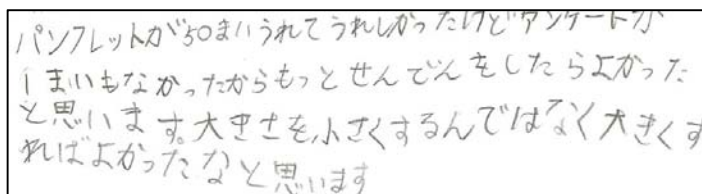 パンフレットが50まいうれてうれしかったけどアンケートが
1まいもなかったからもっとせんでんをしたらよかった
と思います。大きさを小さくするんではなく大きくす
ればよかったなと思います